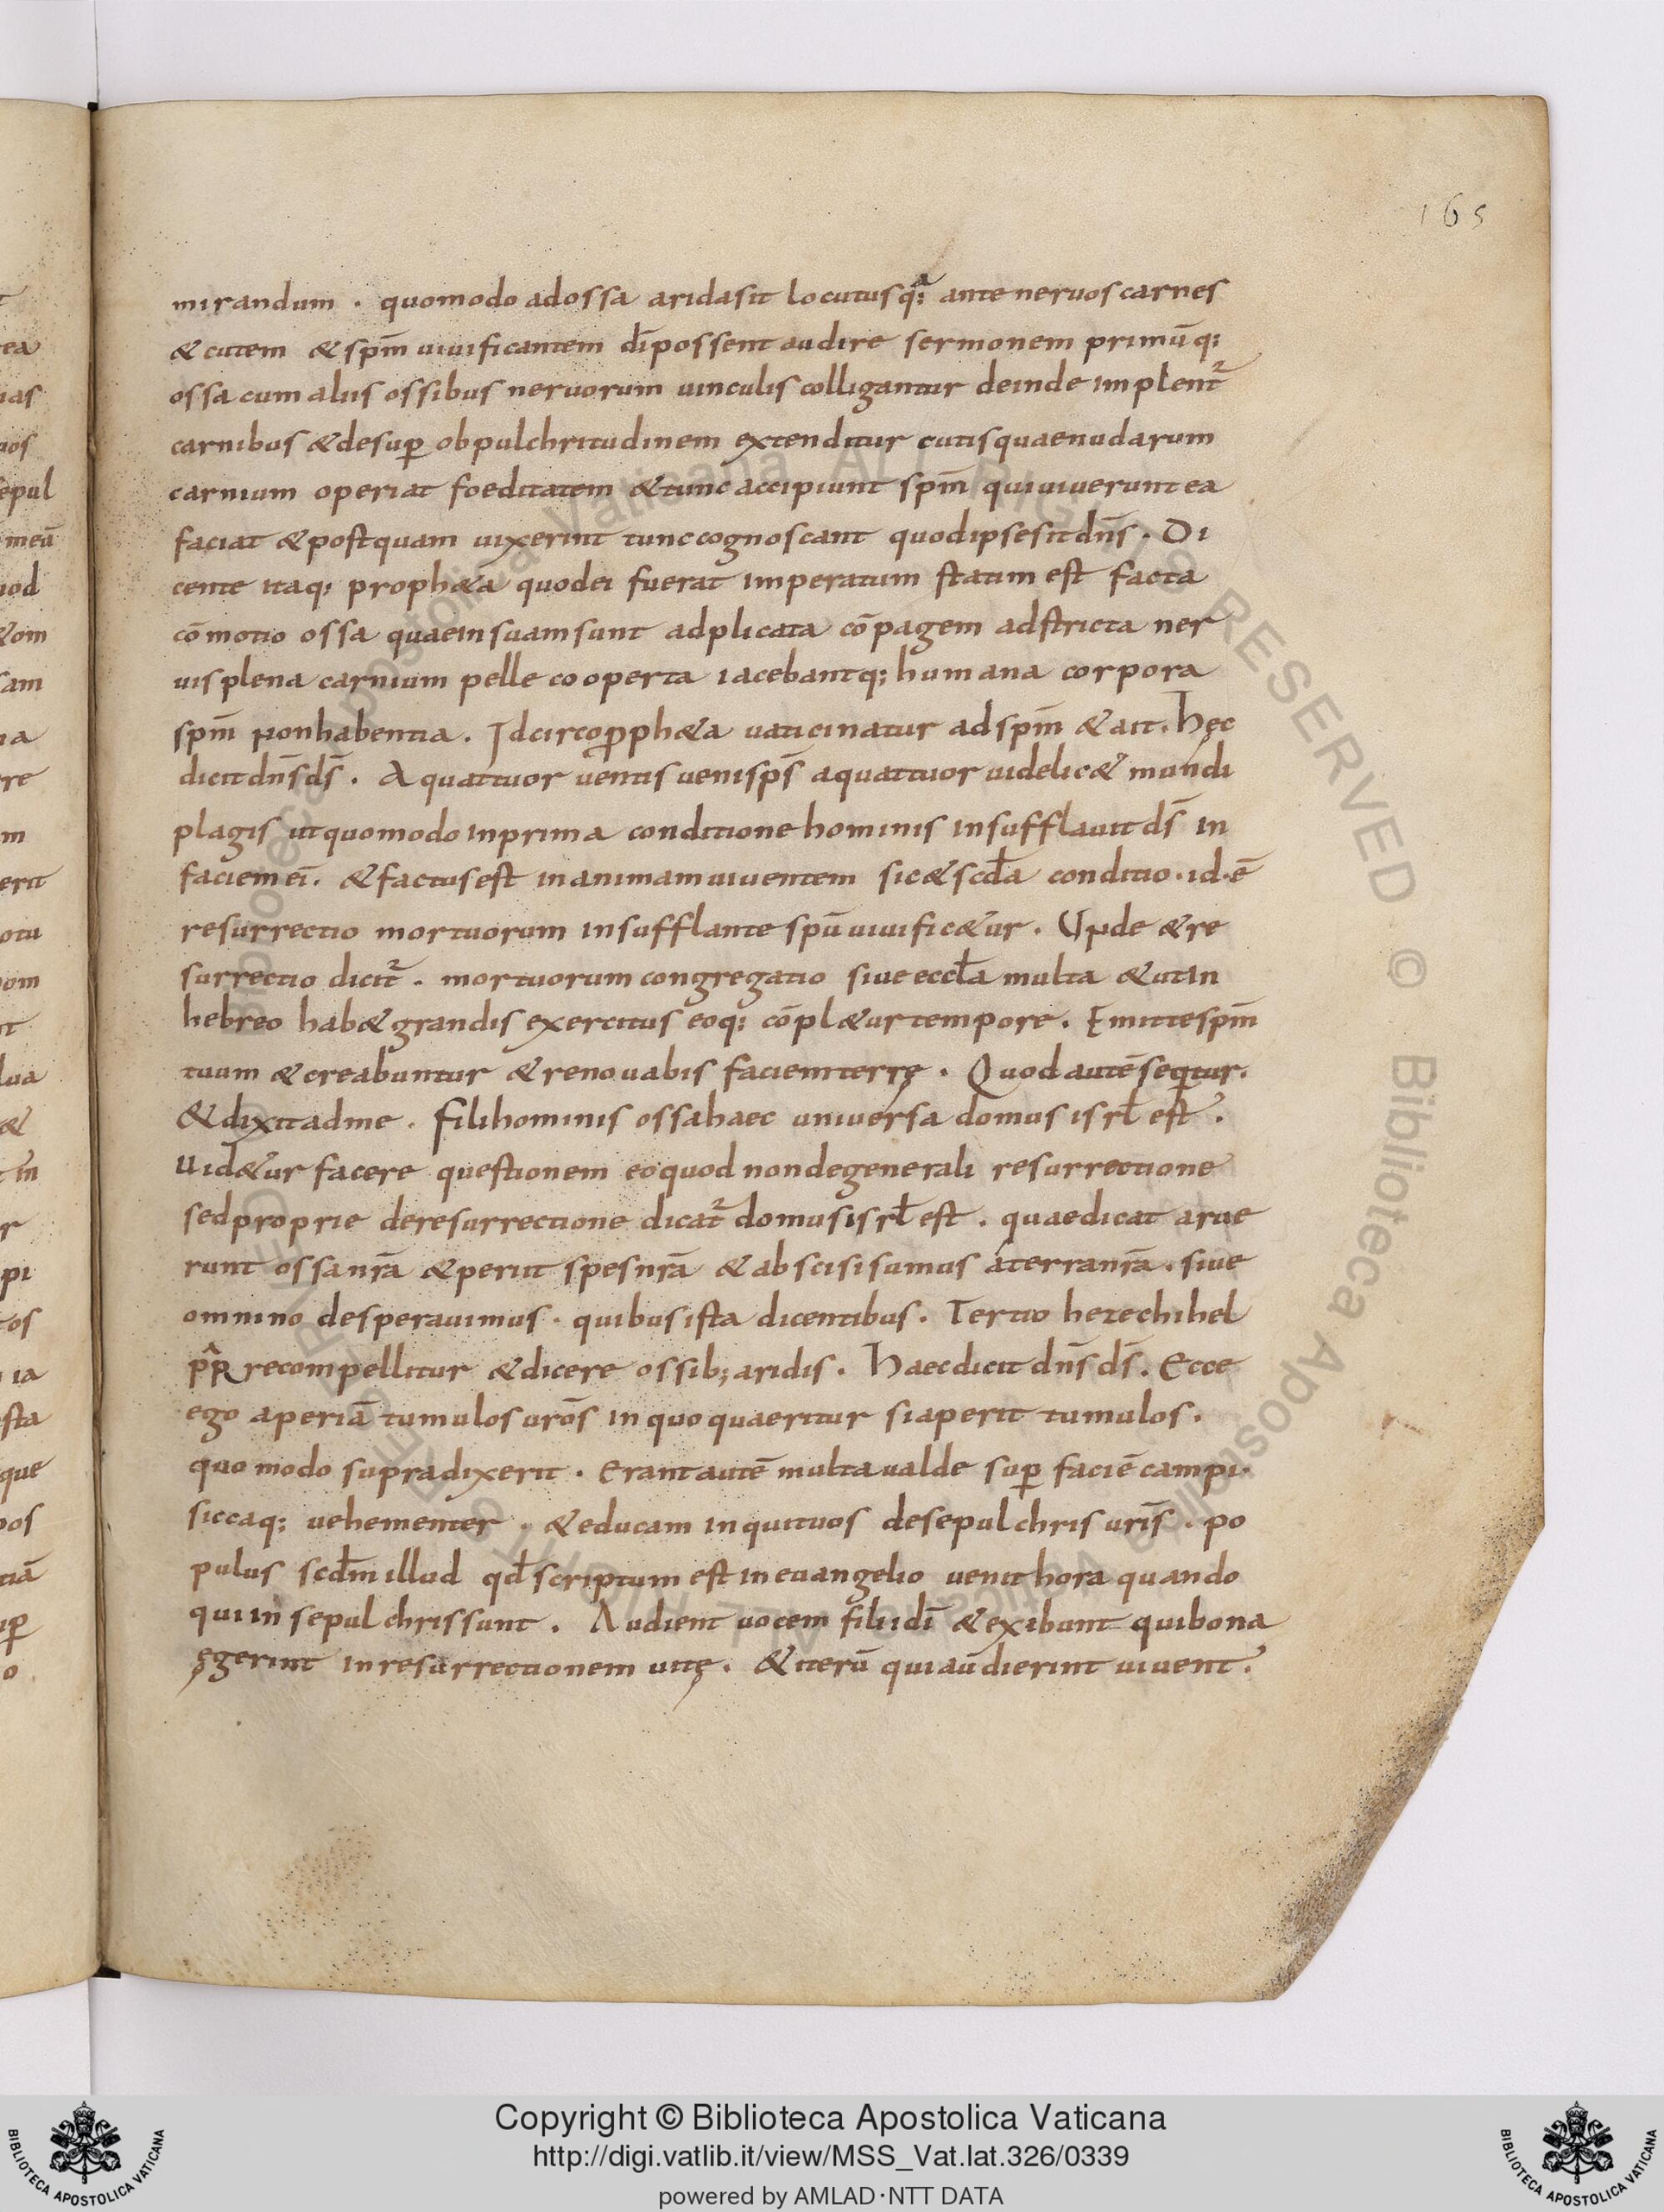 165
mirandum . quomodo ad ossa arida sit locutus q:ᵃ ante neruos carnes
& cutem & spm̄ uiuificantem dī possent audire sermonem primūq;
ossa cum aliis ossibus neruorum uinculis colligantur deinde implent᷑
carnibus & desup̱ ob pulchritudinem extenditur cutis quae nudarum
carnium operiat foeditatem & tunc accipiunt spm̄ qui uiuerunt ea
faciat & postquam uixerint tunc cognoscant quod ipse sit dn̄s . Di
cente itaq; proph&a quod ei fuerat imperatum statim est facta
cōmotio ossa quae in suam sunt adplicata cōpagem adstricta ner
uis plena carnium pelle cooperta iacebantq; humana corpora
spm̄ non habentia . Idcirco ꝓph&a uaticinatur ad spm̄ & ait . Hęc
dicit dn̄s ds̄ . A quattuor uentis ueni sps̄ a quattuor uidelic& mundi
plagis ut quomodo in prima conditione hominis insufflauit ds̄ in
faciem eī . & factus est in animam uiuentem sic & scd̄a conditio . id . ē
resurrectio mortuorum insufflante spū uiuific&ur . Unde & re
surrectio dicit᷑ . mortuorum congregatio siue eccl̄a multa & ut in
hebreo hab& grandis exercitus eoq; cōpl&ur tempore . Emitte spm̄
tuum & creabuntur & renouabis faciem terrę . Quod autē seqitur .
& dixit ad me . fili hominis ossa haec uniuersa domus isrl̄ est .
Uid&ur facere questionem eo quod non de generali resurrectione
sed proprie de resurrectione dicat᷑ domus isrl̄ est . quae dicat arue
runt ossa nr̄a & periit spes nr̄a & abscisi sumus a terra nr̄a . siue
omnino desperauimus . quibus ista dicentibus . Tertio hezechihel
recompellitur & dicere ossib; aridis . Haec dicit dn̄s ds̄ . Ecce
ego aperiā tumulos urōs in quo quaeritur si aperit tumulos .
quomodo supra dixerit . Erant autē multa ualde sup̱ faciē campi .
siccaq; uehementer . & educam inquit uos de sepulchris uris̄ . po
pulus scd̄m illud qd̄ scriptum est in euangelio uenit hora quando
qui in sepulchris sunt . Audient uocem filii dī & exibunt qui bona
ęgerint in resurrectionem uitę . & iterū qui audierint uiuent .
Copyright © Biblioteca Apostolica Vaticana
http://digi.vatlib.it/view/MSS_Vat.lat.326/0339
powered by AMLAD·NTT DATA